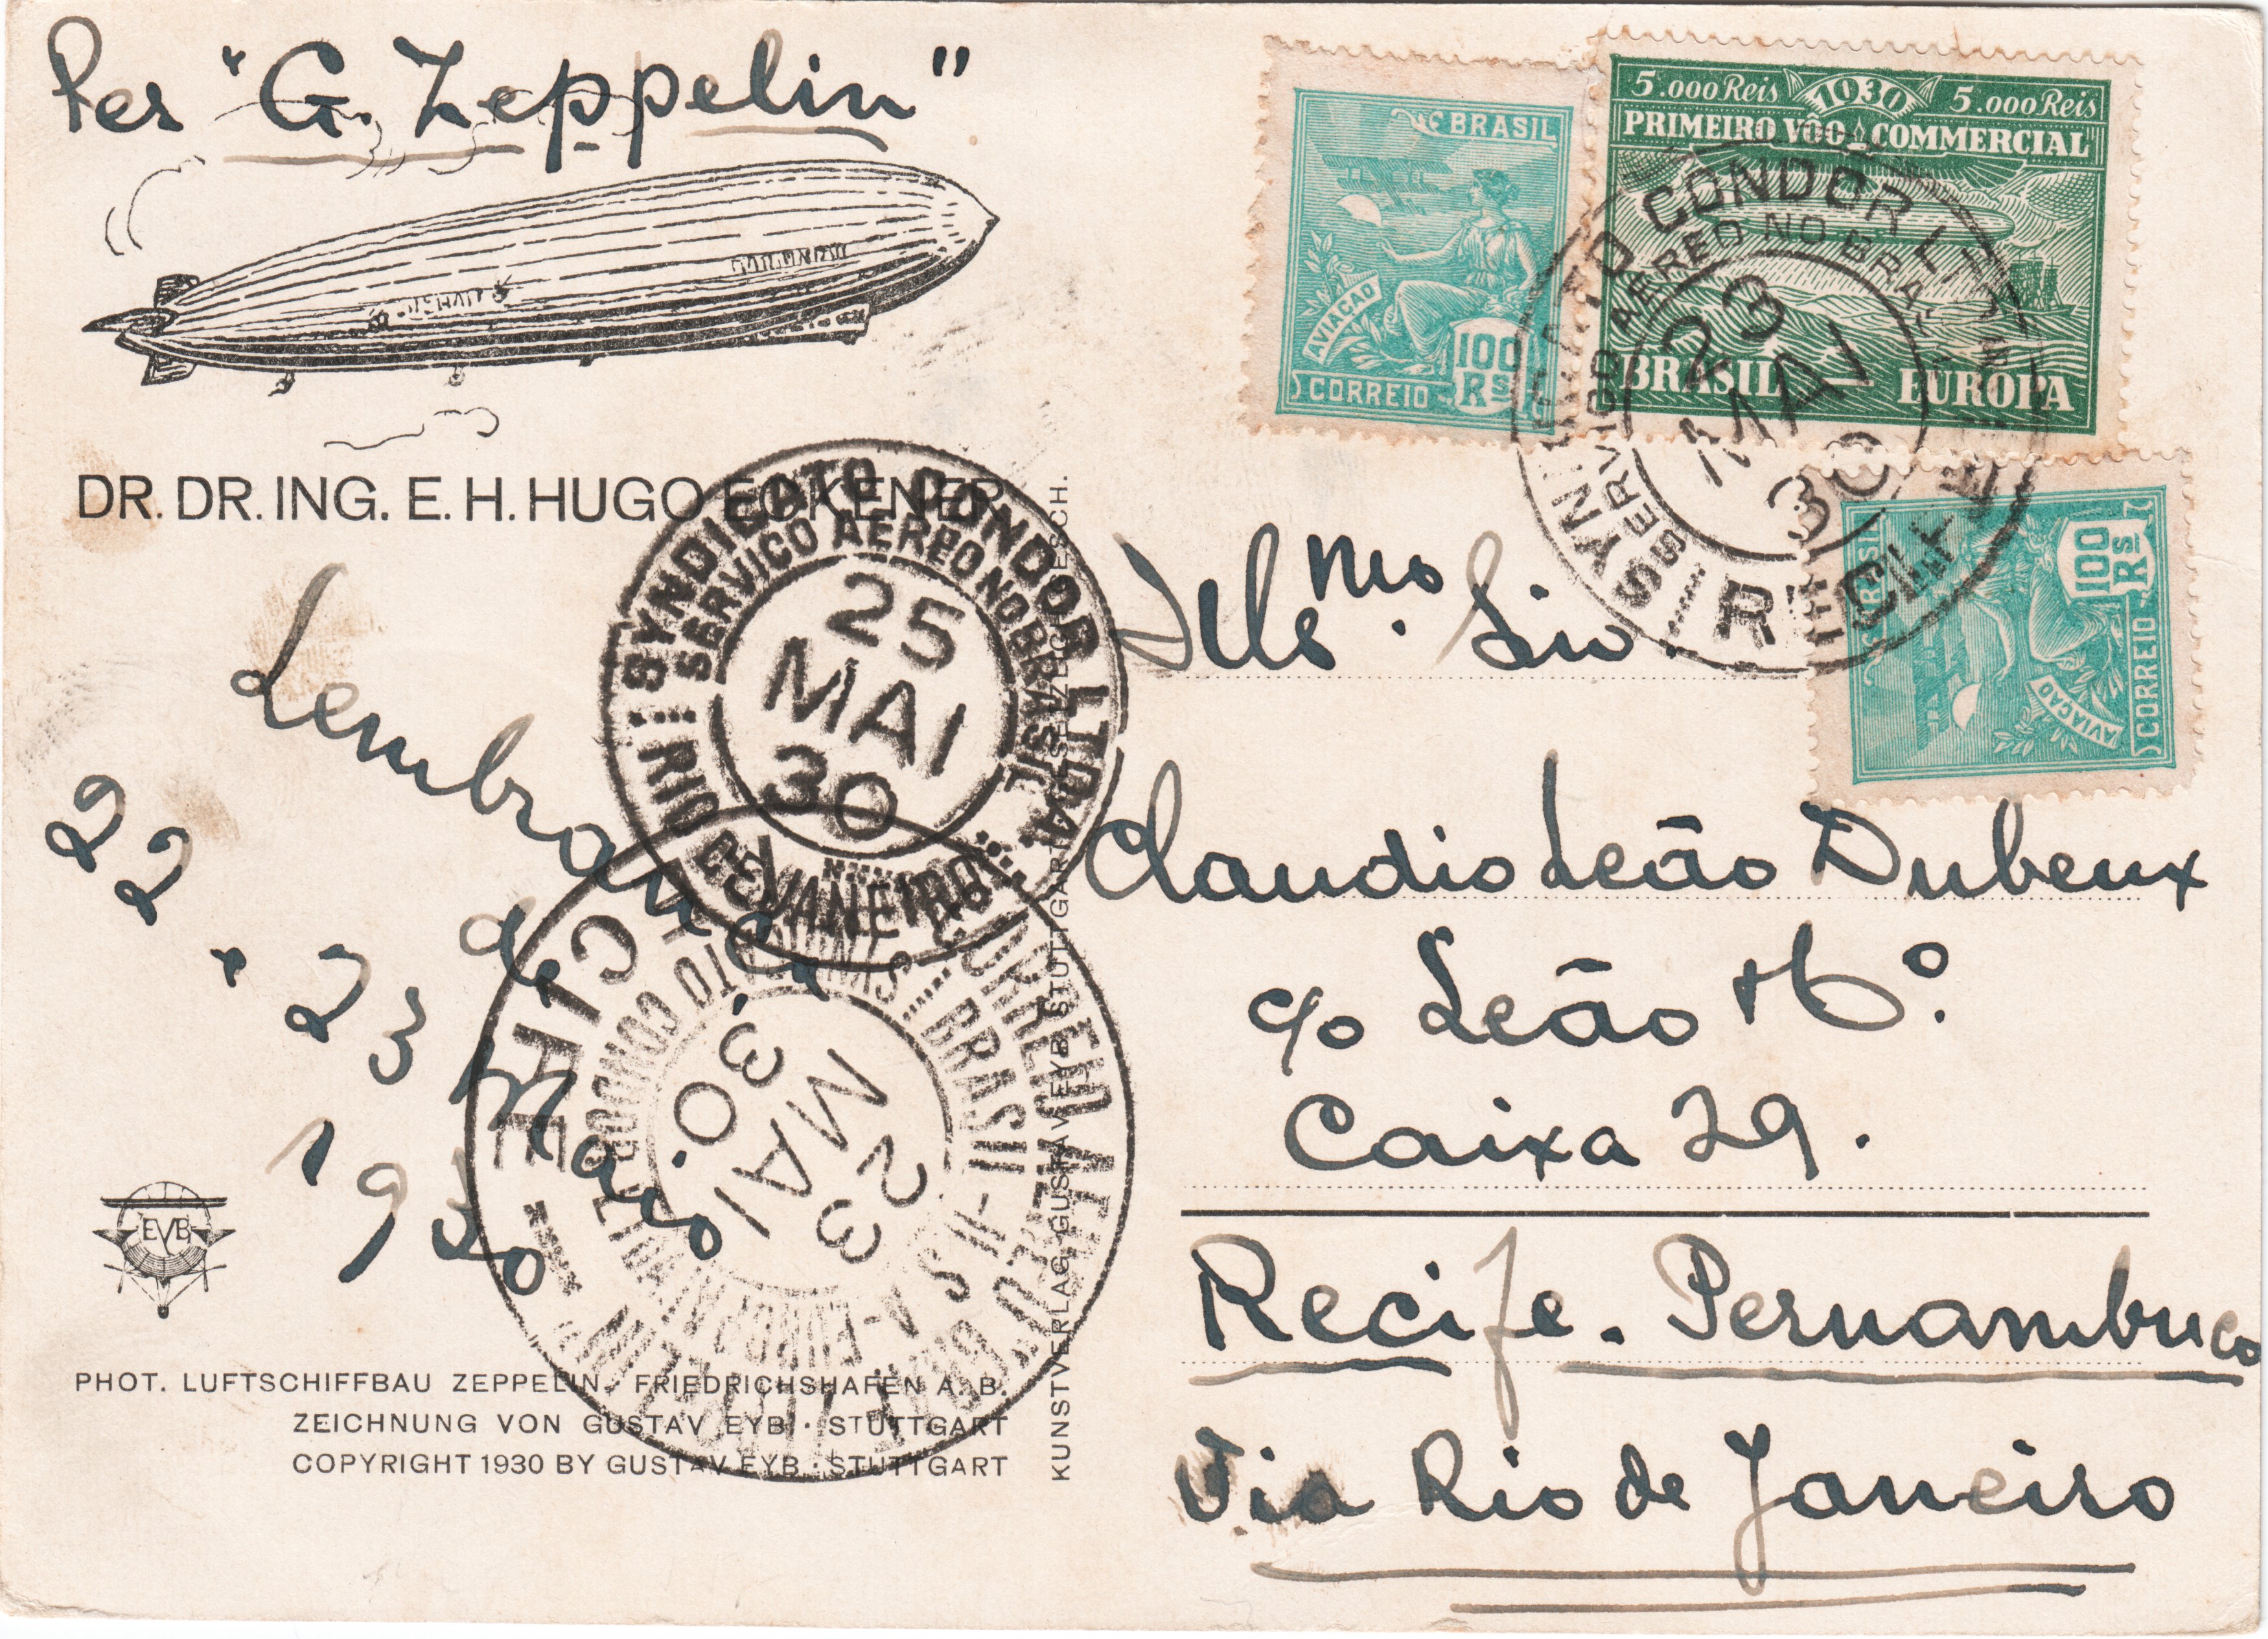 Per "G. Zeppelin"
DR. DR. ING. E. H. HUGO ECKENER
Lembrança
22 . 23 de Maio
1930
EYB
PHOT. LUFTSCHIFFBAU ZEPPELIN, FRIEDRICHSHAFEN A. B.
ZEICHNUNG VON GUSTAV EYB · STUTTGART
COPYRIGHT 1930 BY GUSTAV EYB · STUTTGART
KUNSTVERLAG GUSTAV EYB, STUTTGART
SYNDICATO CONDOR LTDA.
SERVIÇO AEREO NO BRASIL
25
MAI
30
RIO DE JANEIRO
CORREIO AEREO
BRASIL - U S A - EUROPA
SYNDICATO CONDOR
23
MAI
30
RECIFE
BRASIL
AVIAÇÃO
100 Rs
CORREIO
5.000 Reis 1930 5.000 Reis
PRIMEIRO VÔO COMMERCIAL
BRASIL — EUROPA
SYNDICATO CONDOR LTDA
SERVIÇO AEREO NO BRASIL
23
MAI
30
RECIFE
BRASIL
AVIAÇÃO
100 Rs
CORREIO
Illmo. Snr.
Claudio Leão Dubeux
c/o Leão & Co.
Caixa 29.
Recife. Pernambuco
Via Rio de Janeiro